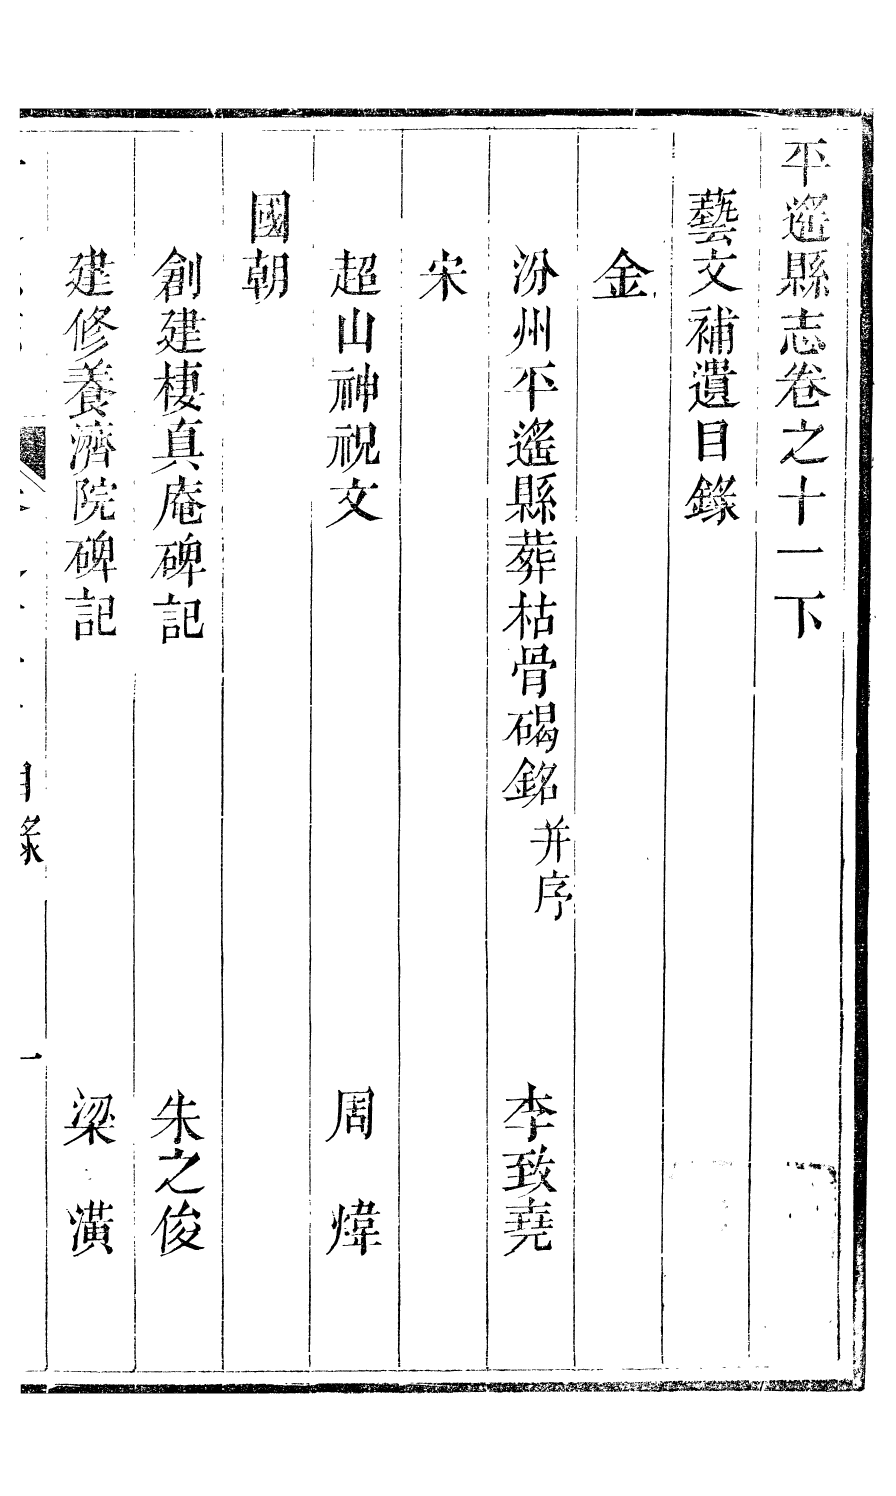 平遙縣志卷之十一下
藝文補遺目錄
金
汾州平遙縣葬枯骨碣銘并序 李致堯
宋
超山神祝文 周煒
國朝
創建棲真庵碑記 朱之俊
建修養濟院碑記 梁潢
目錄 一